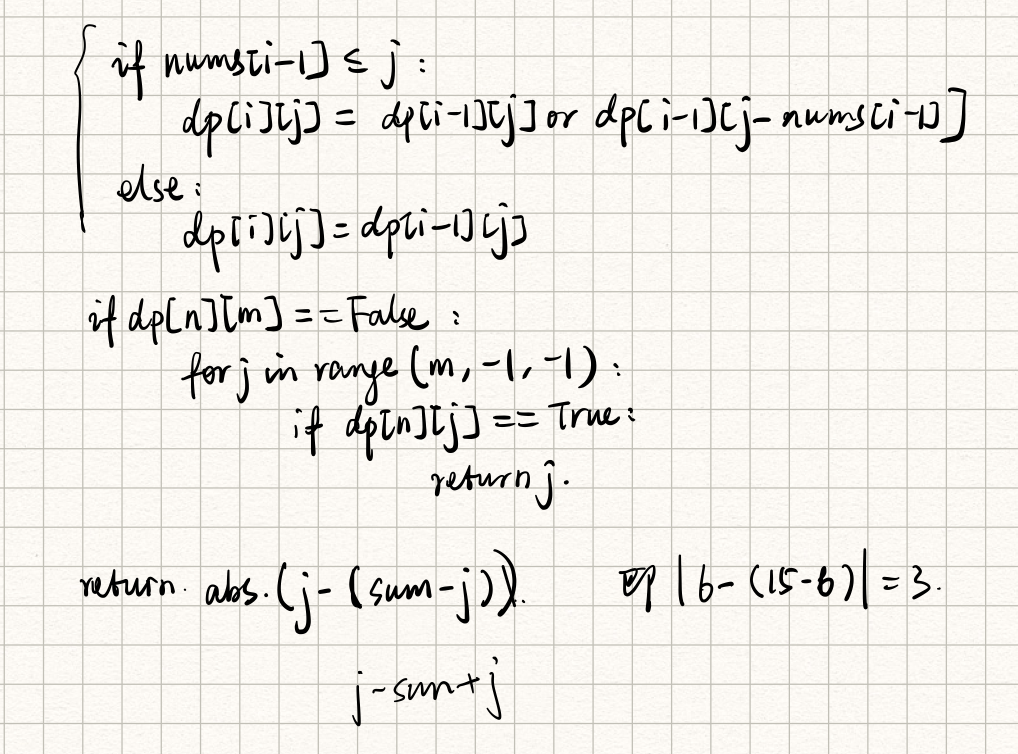 if nums[i-1] ≤ j :
dp[i][j] = dp[i-1][j] or dp[i-1][j-nums[i-1]]
else:
dp[i][j] = dp[i-1][j]
if dp[n][m] == False :
for j in range (m, -1, -1) :
if dp[n][j] == True:
return j.
return. abs.(j-(sum-j)). 即 |6-(15-6)| = 3.
j-sum+j